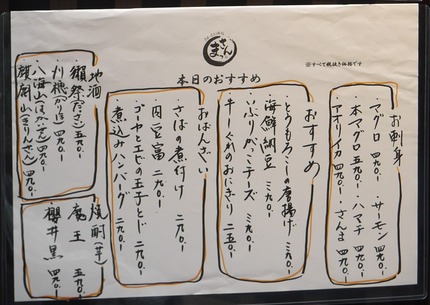 まっさん
※すべて税抜き価格です
本日のおすすめ
お刺身
・マグロ 四九〇- ・サーモン 四九〇-
・本マグロ 五九〇- ・ハマチ 四九〇-
・アオリイカ 四九〇- ・さんま 四九〇-
おすすめ
・とうもろこしの唐揚げ 三九〇-
・海鮮納豆 三九〇-
・いぶりがっこチーズ 三九〇-
・牛しぐれのおにぎり 二五〇-
おばんざい
・さばの煮付け 二九〇-
・肉豆富 二九〇-
・ゴーヤとエビの玉子とじ 二九〇-
・煮込みハンバーグ 二九〇-
地酒
・獺祭(だっさい) 五九〇-
・刈穂(かりほ) 四九〇-
・八海山(はっかいさん) 四九〇-
・麒麟山(きりんざん) 四九〇-
焼酎(芋)
・魔王 五九〇-
・櫻井黒 四九〇-